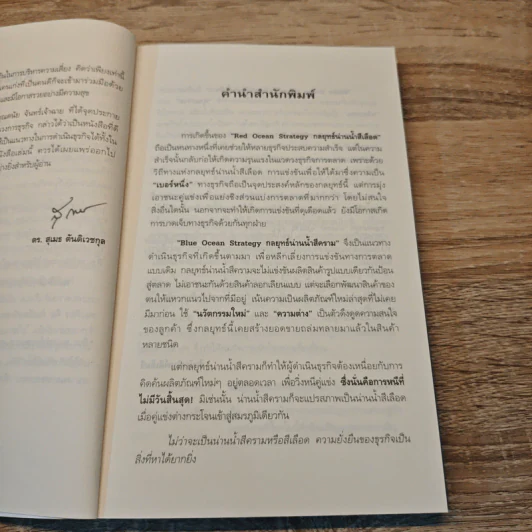 ป็นในการบริหารความเสี่ยง คิดว่าเพียงเท่านี้
และมีโอกาสรวยอย่างมีความสุข
ดนัย จันทร์เจ้าฉาย ที่ได้จุดประกาย
ทางธุรกิจ กล่าวได้ว่าเป็นหนังสือที่ดี
เป็นแนวทางในการดำเนินธุรกิจได้ทั้งใน
หนังสือเล่มนี้ ควรได้เผยแพร่ออกไป
ยิ่งสำหรับผู้อ่าน
ดร. สุเมธ ตันติเวชกุล
คำนำสำนักพิมพ์
การเกิดขึ้นของ "Red Ocean Strategy กลยุทธ์น่านน้ำสีเลือด"
ถือเป็นหนทางหนึ่งที่เคยช่วยให้หลายธุรกิจประสบความสำเร็จ แต่ในความ
สำเร็จนั้นกลับก่อให้เกิดความรุนแรงในแวดวงธุรกิจการตลาด เพราะด้วย
วิธีทางแห่งกลยุทธ์น่านน้ำสีเลือด การแข่งขันเพื่อให้ได้มาซึ่งความเป็น
"เบอร์หนึ่ง" ทางธุรกิจถือเป็นจุดประสงค์หลักของกลยุทธ์นี้ แต่การมุ่ง
เอาชนะคู่แข่งเพื่อแย่งชิงส่วนแบ่งการตลาดที่มากกว่า โดยไม่สนใจ
สิ่งอื่นใดนั้น นอกจากจะทำให้เกิดการแข่งขันที่ดุเดือดแล้ว ยังมีโอกาสเกิด
การบาดเจ็บทางธุรกิจด้วยกันทุกฝ่าย
"Blue Ocean Strategy กลยุทธ์น่านน้ำสีคราม" จึงเป็นแนวทาง
ดำเนินธุรกิจที่เกิดขึ้นตามมา เพื่อหลีกเลี่ยงการแข่งขันทางการตลาด
แบบเดิม กลยุทธ์น่านน้ำสีครามจะไม่แข่งขันผลิตสินค้ารูปแบบเดียวกันป้อน
สู่ตลาด ไม่เอาชนะกันด้วยสินค้าลอกเลียนแบบ แต่จะเลือกพัฒนาสินค้าของ
ตนให้แหวกแนวไปจากที่มีอยู่ เน้นความเป็นผลิตภัณฑ์ใหม่ล่าสุดที่ไม่เคย
มีมาก่อน ใช้ "นวัตกรรมใหม่" และ "ความต่าง" เป็นตัวดึงดูดความสนใจ
ของลูกค้า ซึ่งกลยุทธ์นี้เคยสร้างยอดขายถล่มทลายมาแล้วในสินค้า
หลายชนิด
แต่กลยุทธ์น่านน้ำสีครามก็ทำให้ผู้ดำเนินธุรกิจต้องเหนื่อยกับการ
คิดค้นผลิตภัณฑ์ใหม่ๆ อยู่ตลอดเวลา เพื่อวิ่งหนีคู่แข่ง ซึ่งนั่นคือการหนีที่
ไม่มีวันสิ้นสุด! มิเช่นนั้น น่านน้ำสีครามก็จะแปรสภาพเป็นน่านน้ำสีเลือด
เมื่อคู่แข่งต่างกระโจนเข้าสู่สมรภูมิเดียวกัน
ไม่ว่าจะเป็นน่านน้ำสีครามหรือสีเลือด ความยั่งยืนของธุรกิจเป็น
สิ่งที่หาได้ยากยิ่ง